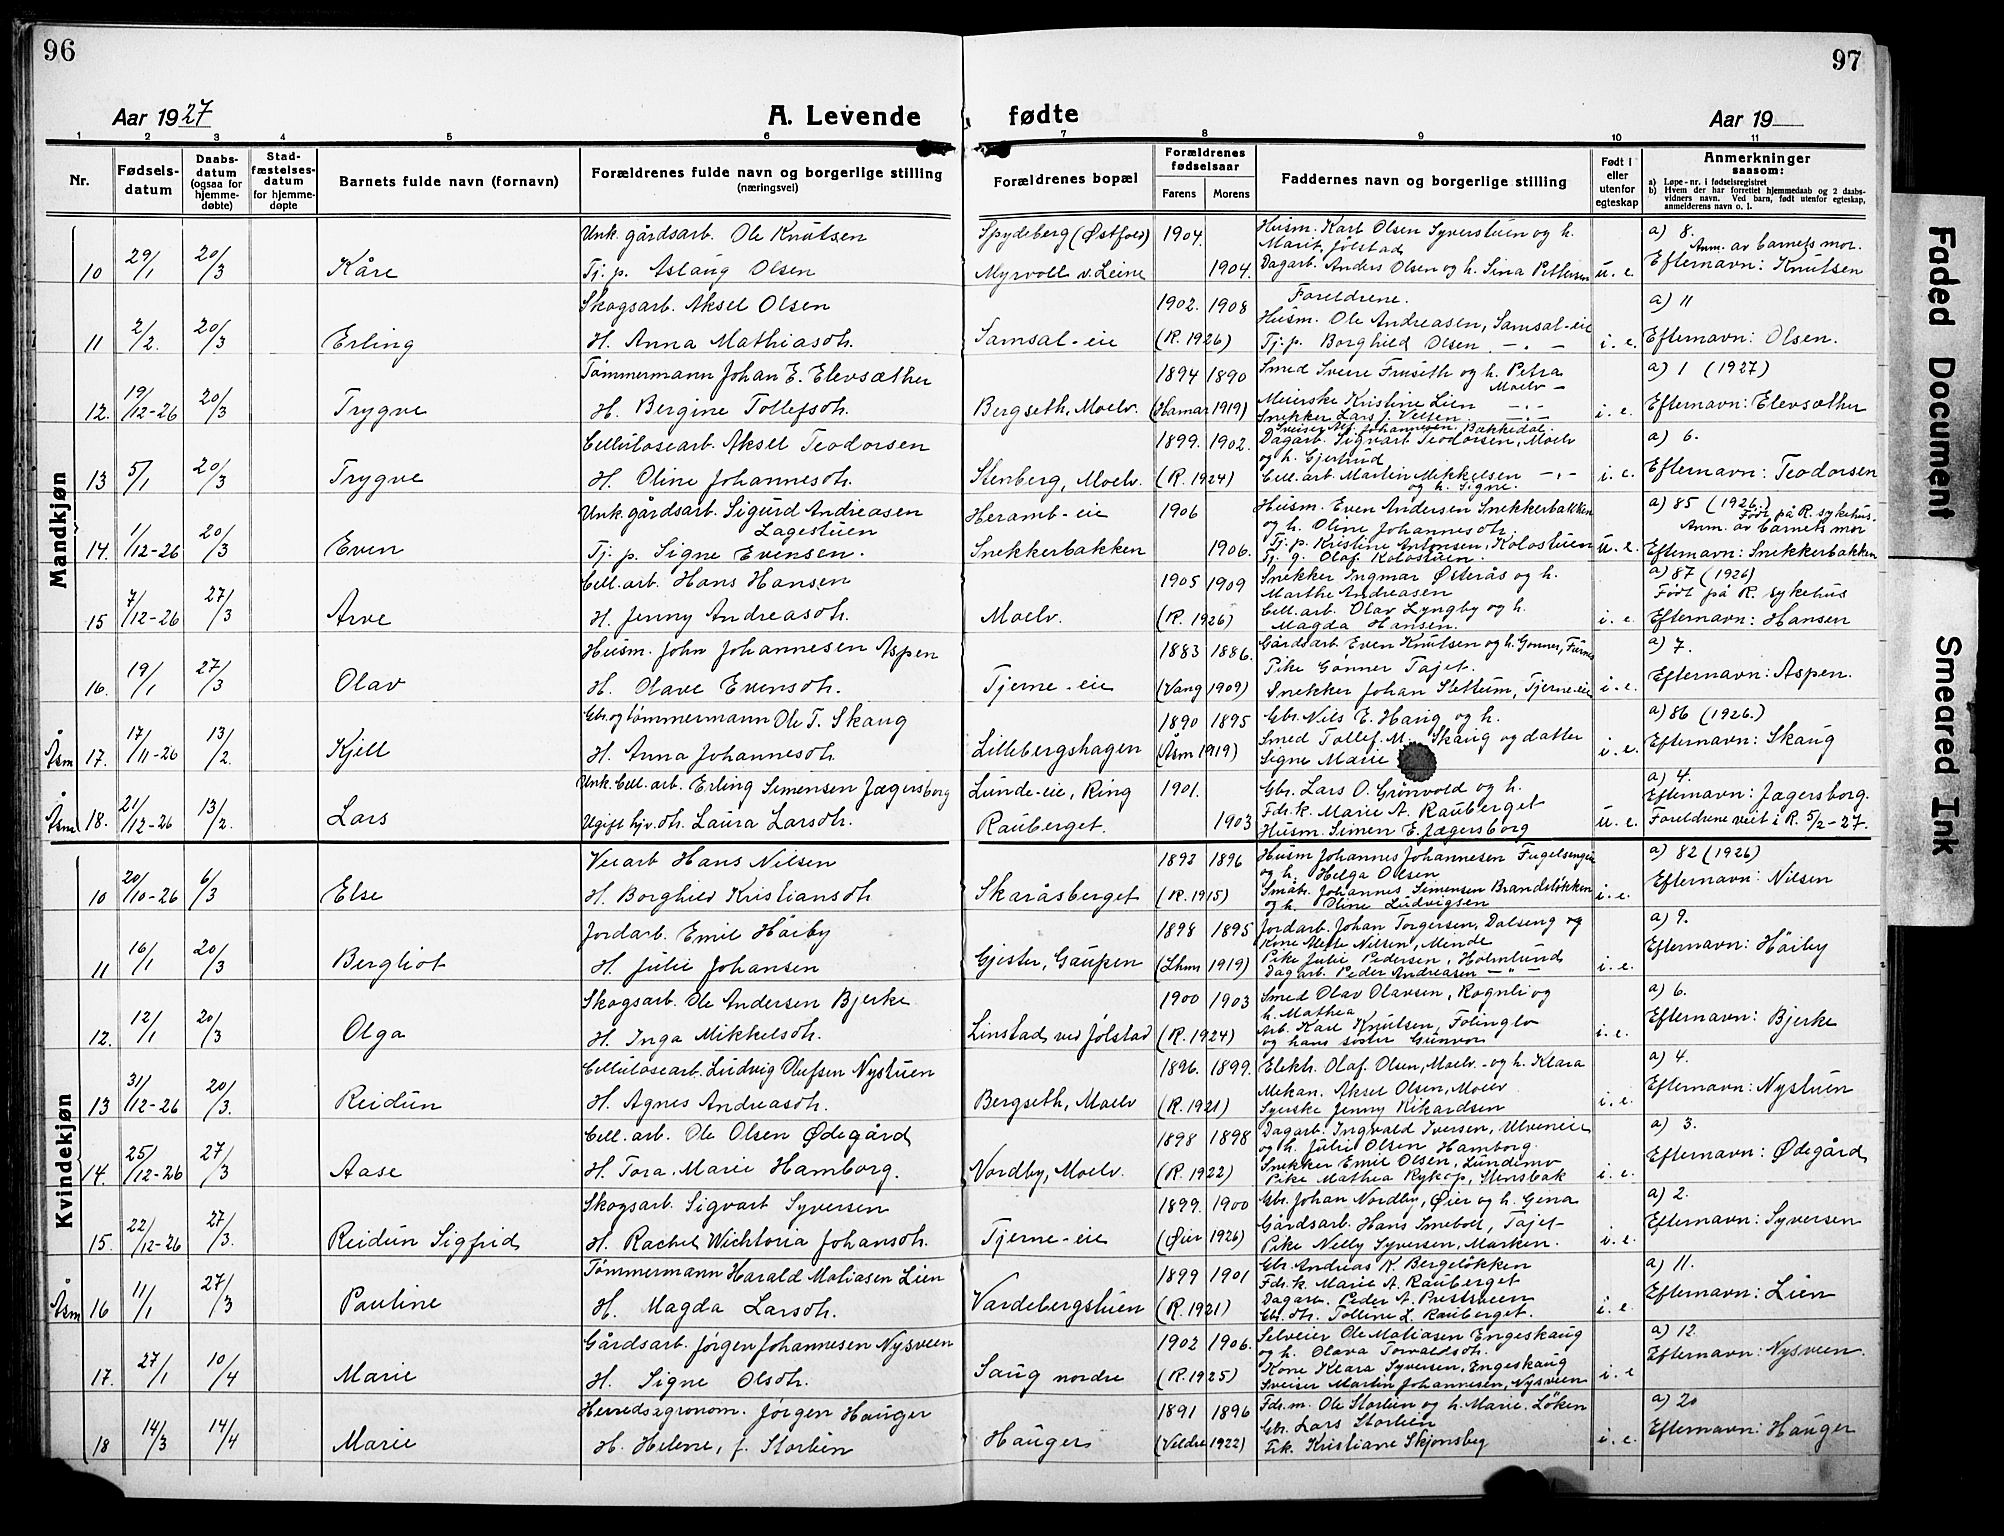 96
97
Aar 1927
A. Levende
fødte
Aar 19
1 2 3 4 5 6 7 8 9 10 11
Nr.
Fødsels-
datum
Daabs-
datum
(ogsaa for
hjemme-
døbte)
Stad-
fæstelses-
datum
for hjemme-
døpte
Barnets fulde navn (fornavn)
Forældrenes fulde navn og borgerlige stilling
(næringsvei)
Forældrenes bopæl
Forældrenes
fødselsaar
Farens Morens
Faddernes navn og borgerlige stilling
Født i
eller
utenfor
egteskap
Anmerkninger
saasom:
a) Løpe-nr. i fødselsregistret
b) Hvem der har forrettet hjemmedaab og 2 daabs-
vidners navn. Ved barn, født utenfor egteskap,
anmelderens navn o. l.
Mandkjøn
Unk. gårdsarb. Ole Knutsen Spydeberg (Østfold) 1904. Husm. Karl Olsen Syverstuen og h. a) 8.
Marit, Jølstad Anm. av barnets mor.
10 29/1 20/3 Kåre Tj. p. Aslaug Olsen Myrvoll v. Leine 1904. Dagarb. Anders Olsen og h. Sina Pettersen u. e. Efternavn: Knutsen
Skogsarb. Aksel Olsen 1902. 1908 Foreldrene. a) 11
Husm. Ole Andreasen, Samsal-eie
11 2/2. 20/3 Erling H. Anna Mathiasdtr. Samsal-eie (R. 1926) Tj. p. Borghild Olsen -,- i. e. Efternavn: Olsen.
Tømmermann Johan E. Elevsæther 1894 1890 Smed Sverre Fruseth og h. Petra a) 1 (1927)
Moelv -
Meierske Kristine Lien -,-
12. 19/12-26 20/3 Trygve H. Bergine Tollefsdtr. Bergseth, Moelv. (Hamar 1919) Snekker Lars J. Velsen -,- i. e. Efternavn: Elevsæther
Sveiser Alf Johannesen, Bakkedal.
Cellulosearb. Aksel Teodorsen 1899. 1902. Dagarb. Sigvart Teodorsen, Moelv a) 6.
og h. Gjertrud
13 5/1 20/3 Trygve H. Oline Johannesdtr. Stenberg, Moelv. (R. 1924) Cell. arb. Martin Mikkelsen -,- i. e. Efternavn: Teodorsen
og h. Signe.
Unk. gårdsarb. Sigurd Andreasen Heramb-eie 1906 Husm. Even Andersen Snekkerbakken a) 85 (1926.)
Lagestuen og h. Oline Johannesdtr. Født på R. sykehus.
Anm. av barnets mor
14. 1/12-26 20/3 Even Tj. p. Signe Evensen. Snekkerbakken 1906. Tj. p. Kristine Antonsen, Kolostuen u. e. Efternavn: Snekkerbakken
Tj. g. Olaf Kolostuen.
Cell. arb. Hans Hansen 1905 1909 Snekker Ingmar Østerås og h. a) 87 (1926)
Marthe Andreasen Født på R. sykehus
15 7/12-26 27/3 Arve H. Jenny Andreasdtr. Moelv. (R. 1926) Cell. arb. Olav Lyngby og h. i. e. Efternavn: Hansen
Magda Hansen.
Husm. John Johannesen Aspen 1883 1886. Gårdsarb. Even Knutsen og h. Gonner, Furnes a) 7.
Pike Gønner Tajet.
16. 19/1 27/3 Olav H. Olave Evensdtr. Tjerne-eie (Vang 1909) Snekker Johan Slettum, Tjerne-eie i. e. Efternavn: Aspen.
Gbr. og tømmermann Ole T. Skaug 1890 1895 Gbr. Nils E. Haug og h. a) 86 (1926.)
Åsm 17. 17/11-26 13/2. Kjell H. Anna Johannesdtr. Lillebergshagen (Åsm 1919) Smed Tollef M. Skaug og datter i. e. Efternavn: Skaug
Signe Marie
Unk. Cell. arb. Erling Simensen Jægersborg Lunde-eie, Ring 1901. Gbr. Lars O. Grönvold og h. a) 4.
Fdr. k. Marie A. Rauberget Efternavn: Jægersborg.
Åsm 18. 21/12-26 13/2. Lars Ugift hjv. dtr. Laura Larsdtr. Rauberget. 1903 Husm. Simen E. Jægersborg u. e. Foreldrene viet i R. 5/2-27.
Kvindekjøn
Veiarb Hans Nilsen 1892 1896 Husm Johannes Johannesen Fugelsengen a) 82 (1926)
og h. Helga Olsen
10 20/10-26 6/3 Else H. Borghild Kristiansdtr. Skaråsberget (R. 1915) Småbr. Johannes Simensen Brandeløkken i. e. Efternavn: Nilsen
og h. Oline Ludvigsen
Jordarb. Emil Høiby 1898 1895 Jordarb. Johan Torgersen, Dalseng og a) 9.
Kone Mette Nilsen, Mende
11 16/1 20/3 Bergliot H. Julie Johansen Gjester, Gaupen (Lhm 1919) Pike Julie Pedersen, Holmlund i. e. Efternavn: Høiby
Dagarb. Peder Andreasen -"-
Skogsarb. Ole Andersen Bjerke 1900 1903 Smed Olav Olavsen, Rognli og a) 6.
h. Mathea
12. 12/1 20/3 Olga H. Inga Mikkelsdtr. Linstad ved Jølstad (R. 1924) Arb. Karl Knutsen, Folinglo i. e. Efternavn: Bjerke
og hans søster Gunvor
Cellulosearb. Ludvig Olufsen Nystuen 1896. 1899. Elektr. Olaf Olsen, Moelv. og h. Klara a) 4.
Mekan. Aksel Olsen, Moelv
13 31/12-26 20/3. Reidun H. Agnes Andreasdtr. Bergseth, Moelv (R. 1921) Syerske Jenny Rikardsen i. e. Efternavn: Nystuen
Cell. arb. Ole Olsen Ødegård 1898 1898 Dagarb. Ingvald Iversen, Ulveneie a) 3.
og h. Julie Olsen Hamborg.
14. 25/12-26 27/3 Aase H. Tora Marie Hamborg. Nordby, Moelv. (R. 1922) Snekker Emil Olsen, Lundemo i. e. Efternavn: Ødegård
Pike Mathea Rykop, Stensbak
Skogsarb. Sigvart Syversen 1899. 1900 Gbr. Johan Nordby, Øier og h. Gena a) 2.
Gårdsarb. Hans Smeboel, Tajet-
15. 22/12-26 27/3. Reidun Sigfrid H. Rachel Wichtoria Johansdtr. Tjerne-eie (Øier 1926) Pike Nelly Syversen, Marken. i. e. Efternavn: Syversen
Tømmermann Harald Matiasen Lien 1899 1901 Gbr. Andreas K. Bergeløkken a) 11.
Fdr. k. Marie A. Rauberget
Åsm 16 11/1 27/3 Pauline H. Magda Larsdtr. Vardebergstuen (R. 1921) Dagarb. Peder A. Prestsveen i. e. Efternavn: Lien
Gbr. dtr. Tolline L. Rauberget.
Gårdsarb. Jørgen Johannesen Nysveen 1902 1906. Selveier Ole Matiasen Engeskaug a) 12.
og h. Olava Torvaldsdtr.
17. 27/1 10/4 Marie H. Signe Olsdtr. Saug nordre (R. 1925) Kone Klara Syversen, Engeskaug i. e Efternavn: Nysveen.
Sveiser Martin Johannesen, Nysveen
Herredsagronom. Jørgen Hauger 1891 1896 Fdr. m. Ole Storlien og h. Marie, Löken a) 20
Gbr. Lars Storlien
18 14/3 14/4 Marie H. Helene, f. Storlien Haugers (Veldre 1922) Frk. Kristiane Skjønsbeg i. e. Efternavn: Hauger
Faded Document
Smeared Ink